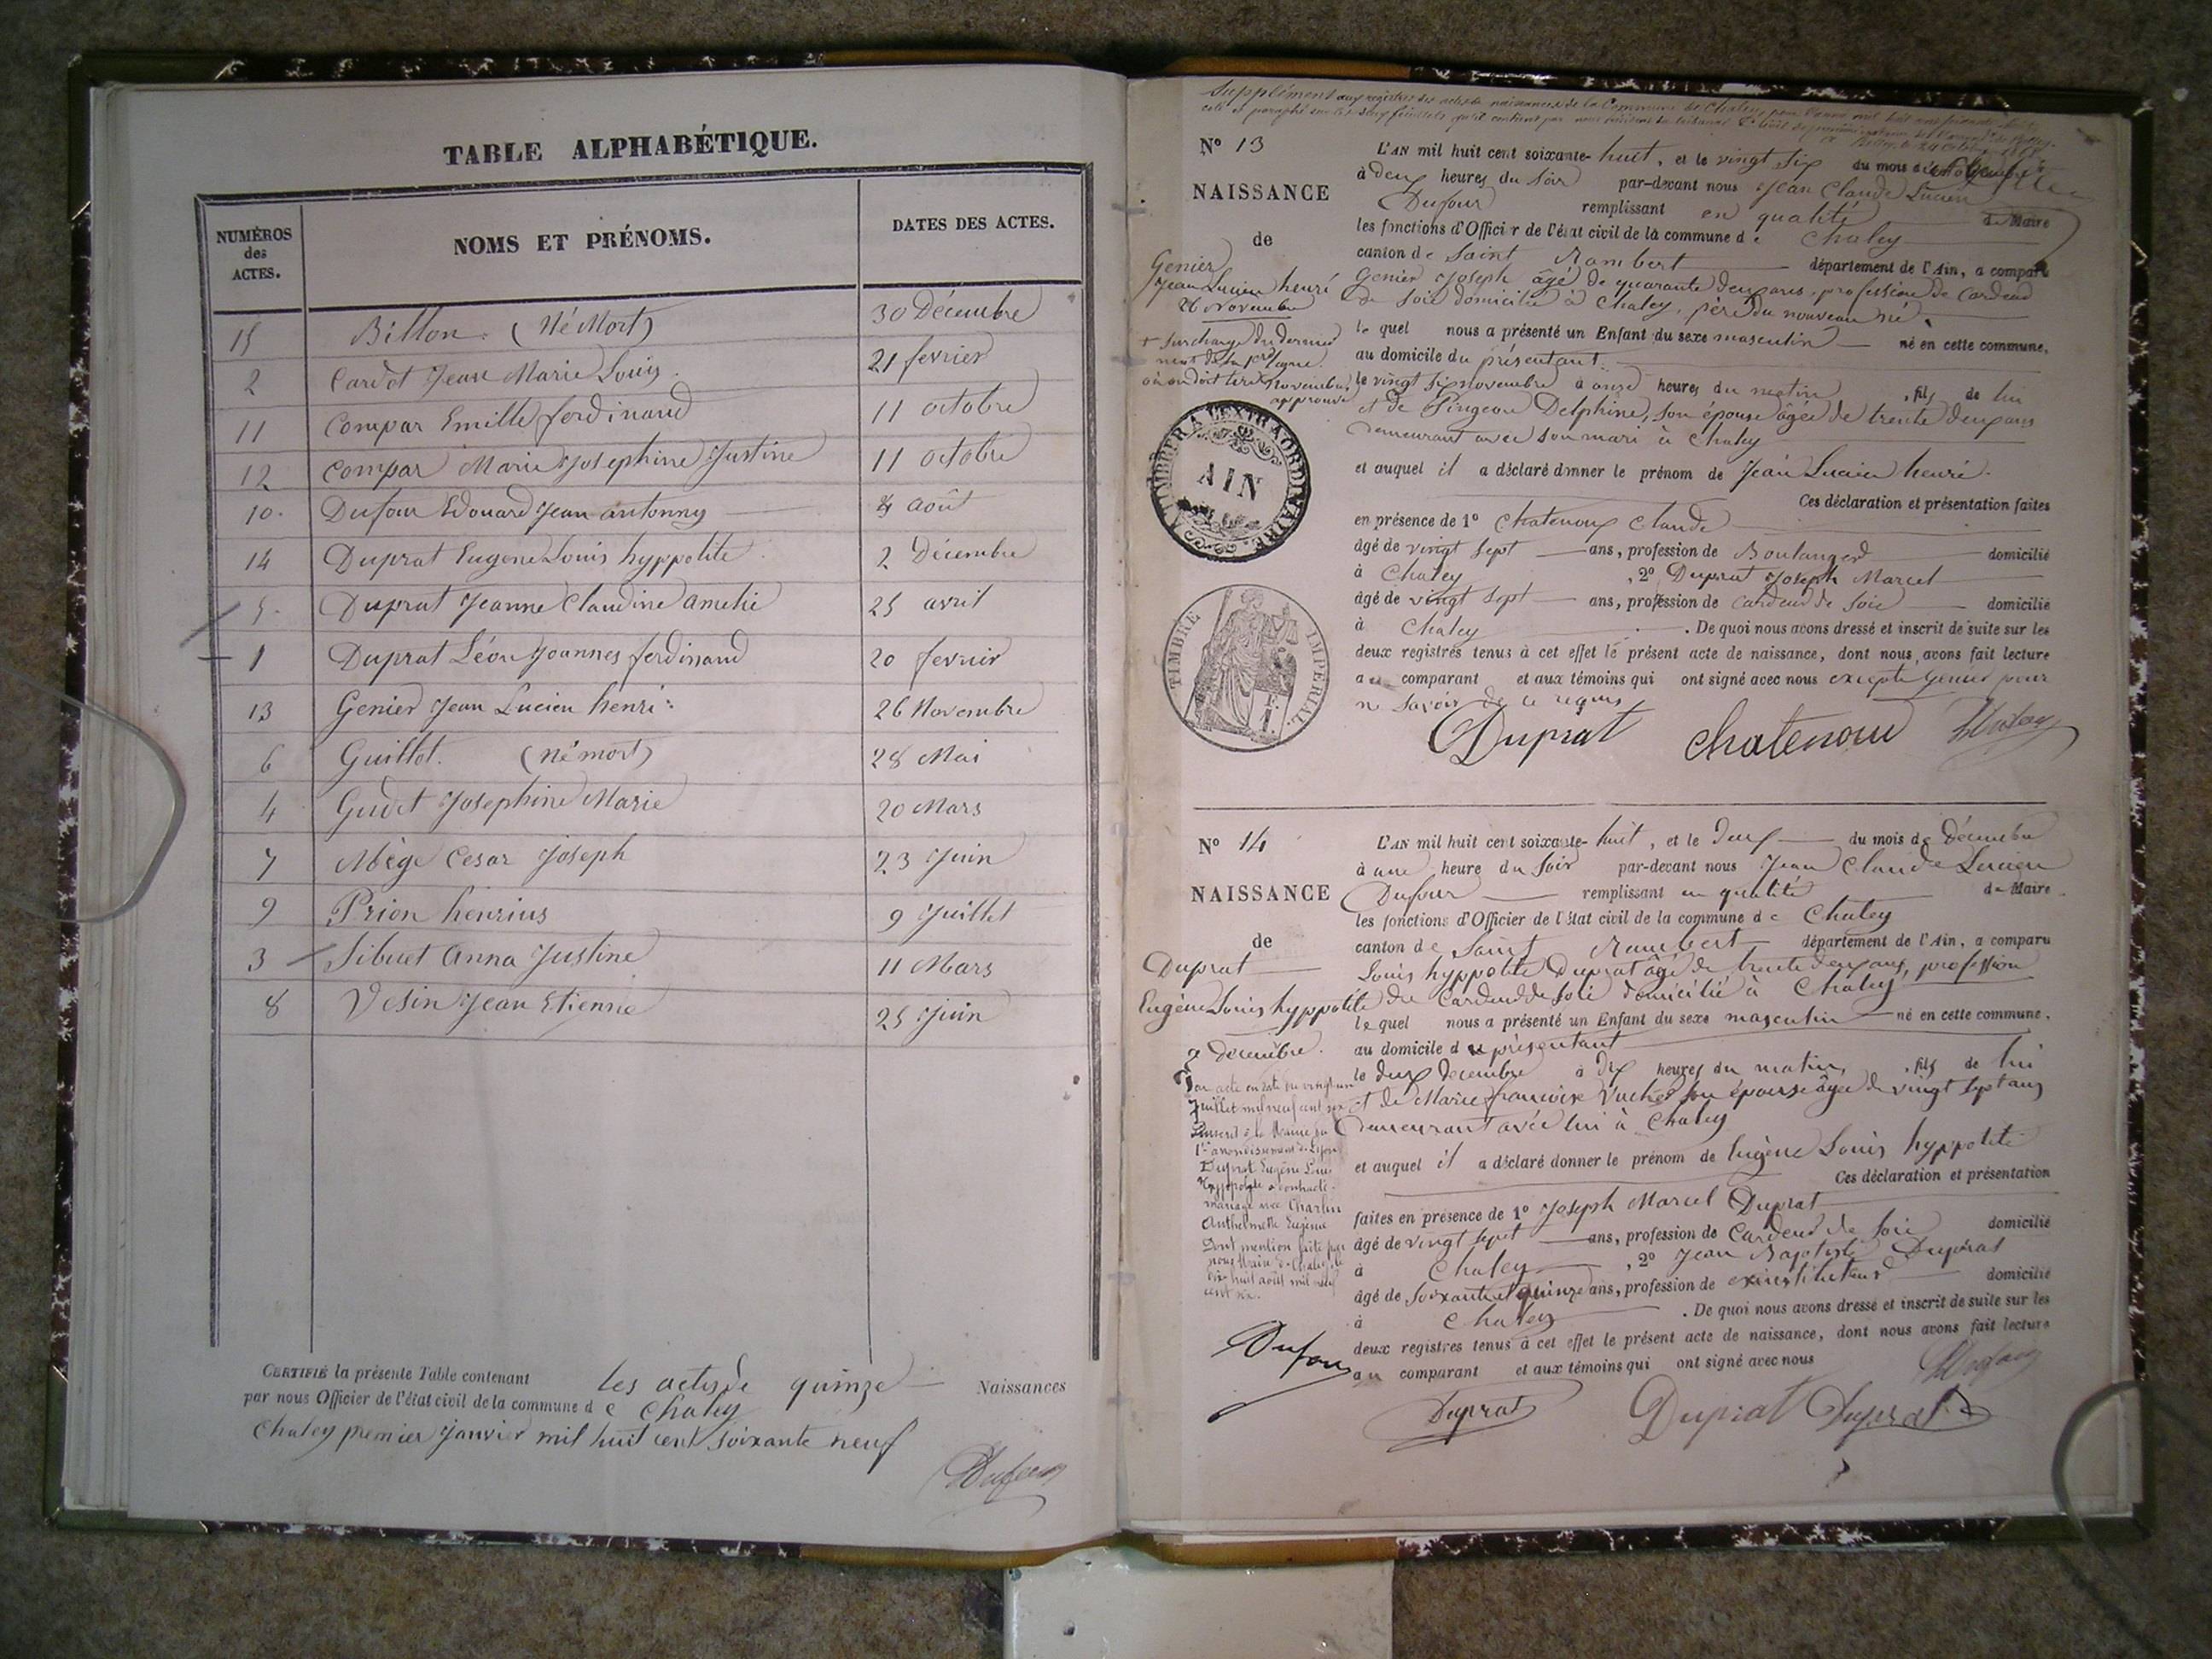 TABLE ALPHABÉTIQUE.
NUMÉROS des ACTES. NOMS ET PRÉNOMS. DATES DES ACTES.
15 Billon. (Né Mort) 30 Décembre
2 Cardot Jean Marie Louis. 21 fevrier
11 Compar Emille ferdinand 11 octobre
12 Compar Marie Josephine Justine 11 octobre
10. Dufour Edouard Jean antonny 4 août
14 Duprat Eugene Louis hyppolite 2 Décembre
5. Duprat Jeanne Claudine amelie 25 avril
1 Duprat Léon Joannes ferdinand 20 fevrier
13 Genier Jean Lucien henri 26 Novembre
6 Guillot. (né mort) 28 Mai
4 Josephine Marie 20 Mars
7 Mège Cesar Joseph 23 Juin
9 Prion henrius 9 Juillet
3 Sibuet Anna Justine 11 Mars
8 Vesin Jean Etienne 25 Juin
CERTIFIÉ la présente Table contenant les actes de quinze Naissances
par nous Officier de l'état civil de la commune de Chaley
Chaley premier Janvier mil huit cent soixante neuf
Dufour
Supplément aux registres des actes de naissances de la Commune de Chaley pour l'année mil huit cent soixante
N° 13
NAISSANCE
de
Genier
Jean Lucien henri
26 Novembre
approuvé
A TIMBRER A L'EXTRAORDINAIRE
AIN
TIMBRE IMPERIAL
L'AN mil huit cent soixante-huit, et le vingt six du mois de
à deux heures du soir par-devant nous Jean Claude Lucien
Dufour remplissant en qualité de Maire
les fonctions d'Officier de l'état civil de la commune de Chaley
canton de Saint Rambert département de l'Ain, a comparu
Genier Joseph âgé de quarante deux ans, profession de Cardeur
de soie domicilié à Chaley, père du nouveau né
lequel nous a présenté un Enfant du sexe masculin né en cette commune,
au domicile du présentant.
le vingt six novembre à onze heures du matin, fils de lui
et de Pingeon Delphine, son épouse âgée de trente deux ans
demeurant avec son mari à Chaley
et auquel il a déclaré donner le prénom de Jean Lucien henri
Ces déclaration et présentation faites
en présence de 1° Chatenoux Claude
âgé de vingt sept ans, profession de Boulanger domicilié
à Chaley, 2° Duprat Joseph Marcel
âgé de vingt sept ans, profession de Cardeur de soie domicilié
à Chaley. De quoi nous avons dressé et inscrit de suite sur les
deux registres tenus à cet effet le présent acte de naissance, dont nous avons fait lecture
au comparant et aux témoins qui ont signé avec nous excepté Genier pour
ne savoir de ce requis
Duprat Chatenoux Dufour
N° 14
NAISSANCE
de
Duprat
Eugène Louis hyppolite
2 décembre.
Par acte en date du vingt un
Juillet mil neuf cent six
1er arrondissement de Lyon
Duprat Eugène Louis
Hyppolyte a contracté
mariage avec Charlin
Anthelmette Eugénie
Dont mention faite par
nous Maire de Chaley le
dix huit août mil neuf
cent six.
Dufour
L'AN mil huit cent soixante-huit, et le deux du mois de Décembre
à une heure du soir par-devant nous Jean Claude Lucien
Dufour remplissant en qualité de Maire
les fonctions d'Officier de l'état civil de la commune de Chaley
canton de Saint Rambert département de l'Ain, a comparu
Louis hyppolite Duprat âgé de trente deux ans, profession
de Cardeur de soie domicilié à Chaley
lequel nous a présenté un Enfant du sexe masculin né en cette commune.
au domicile du présentant
le deux decembre à dix heures du matin, fils de lui
et de Marie françoise Vucher son épouse âgée de vingt sept ans
demeurant avec lui à Chaley
et auquel il a déclaré donner le prénom de Eugène Louis hyppolite
Ces déclaration et présentation
faites en présence de 1° Joseph Marcel Duprat
âgé de vingt sept ans, profession de Cardeur de soie domicilié
à Chaley, 2° Jean Baptiste Duprat
âgé de soixante quinze ans, profession de ex instituteur domicilié
à Chaley. De quoi nous avons dressé et inscrit de suite sur les
deux registres tenus à cet effet le présent acte de naissance, dont nous avons fait lecture
au comparant et aux témoins qui ont signé avec nous
Dufour
Duprat Duprat Duprat